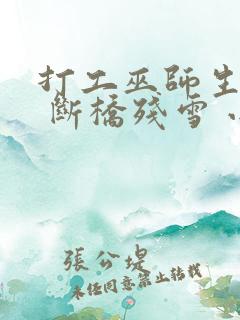 打工巫師生
斷橋殘雪
張公堤
未經同意禁止轉載